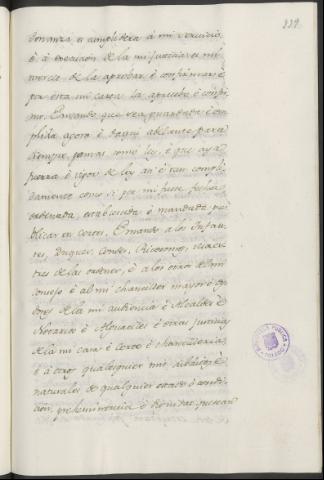 229.
donanza es cumplidera à mi servicio
è à execucion de la mi justicia es mi
merced de la aprobar, è confirmar è
por esta mi carta la apruebo è confir-
mo, E mando que sea guardada è cum-
plida agora è daqui adelante para
siempre jamas como ley, è que aya
fuerza è vigor de ley an è tan cumpli-
damente como si por mi fuese fecha
ordenada, establecida è mandada pu-
blicar en cortes, E mando a los Infan-
tes, Duques, Condes, Ricoshomes, Maes-
tres de las ordenes, è a los otros del mi
consejo è al mi chanciller mayor è oy-
dores de la mi audiencia è Alcaldes è
Notarios è Alguaciles è otras justicias
de la mi casa è corte è chancilleria
è à otros qualesquier mis subditos è
naturales de qualquier estado è condi-
cion, preheminencia è dignidad que sean
PUBLICA
TOLEDO